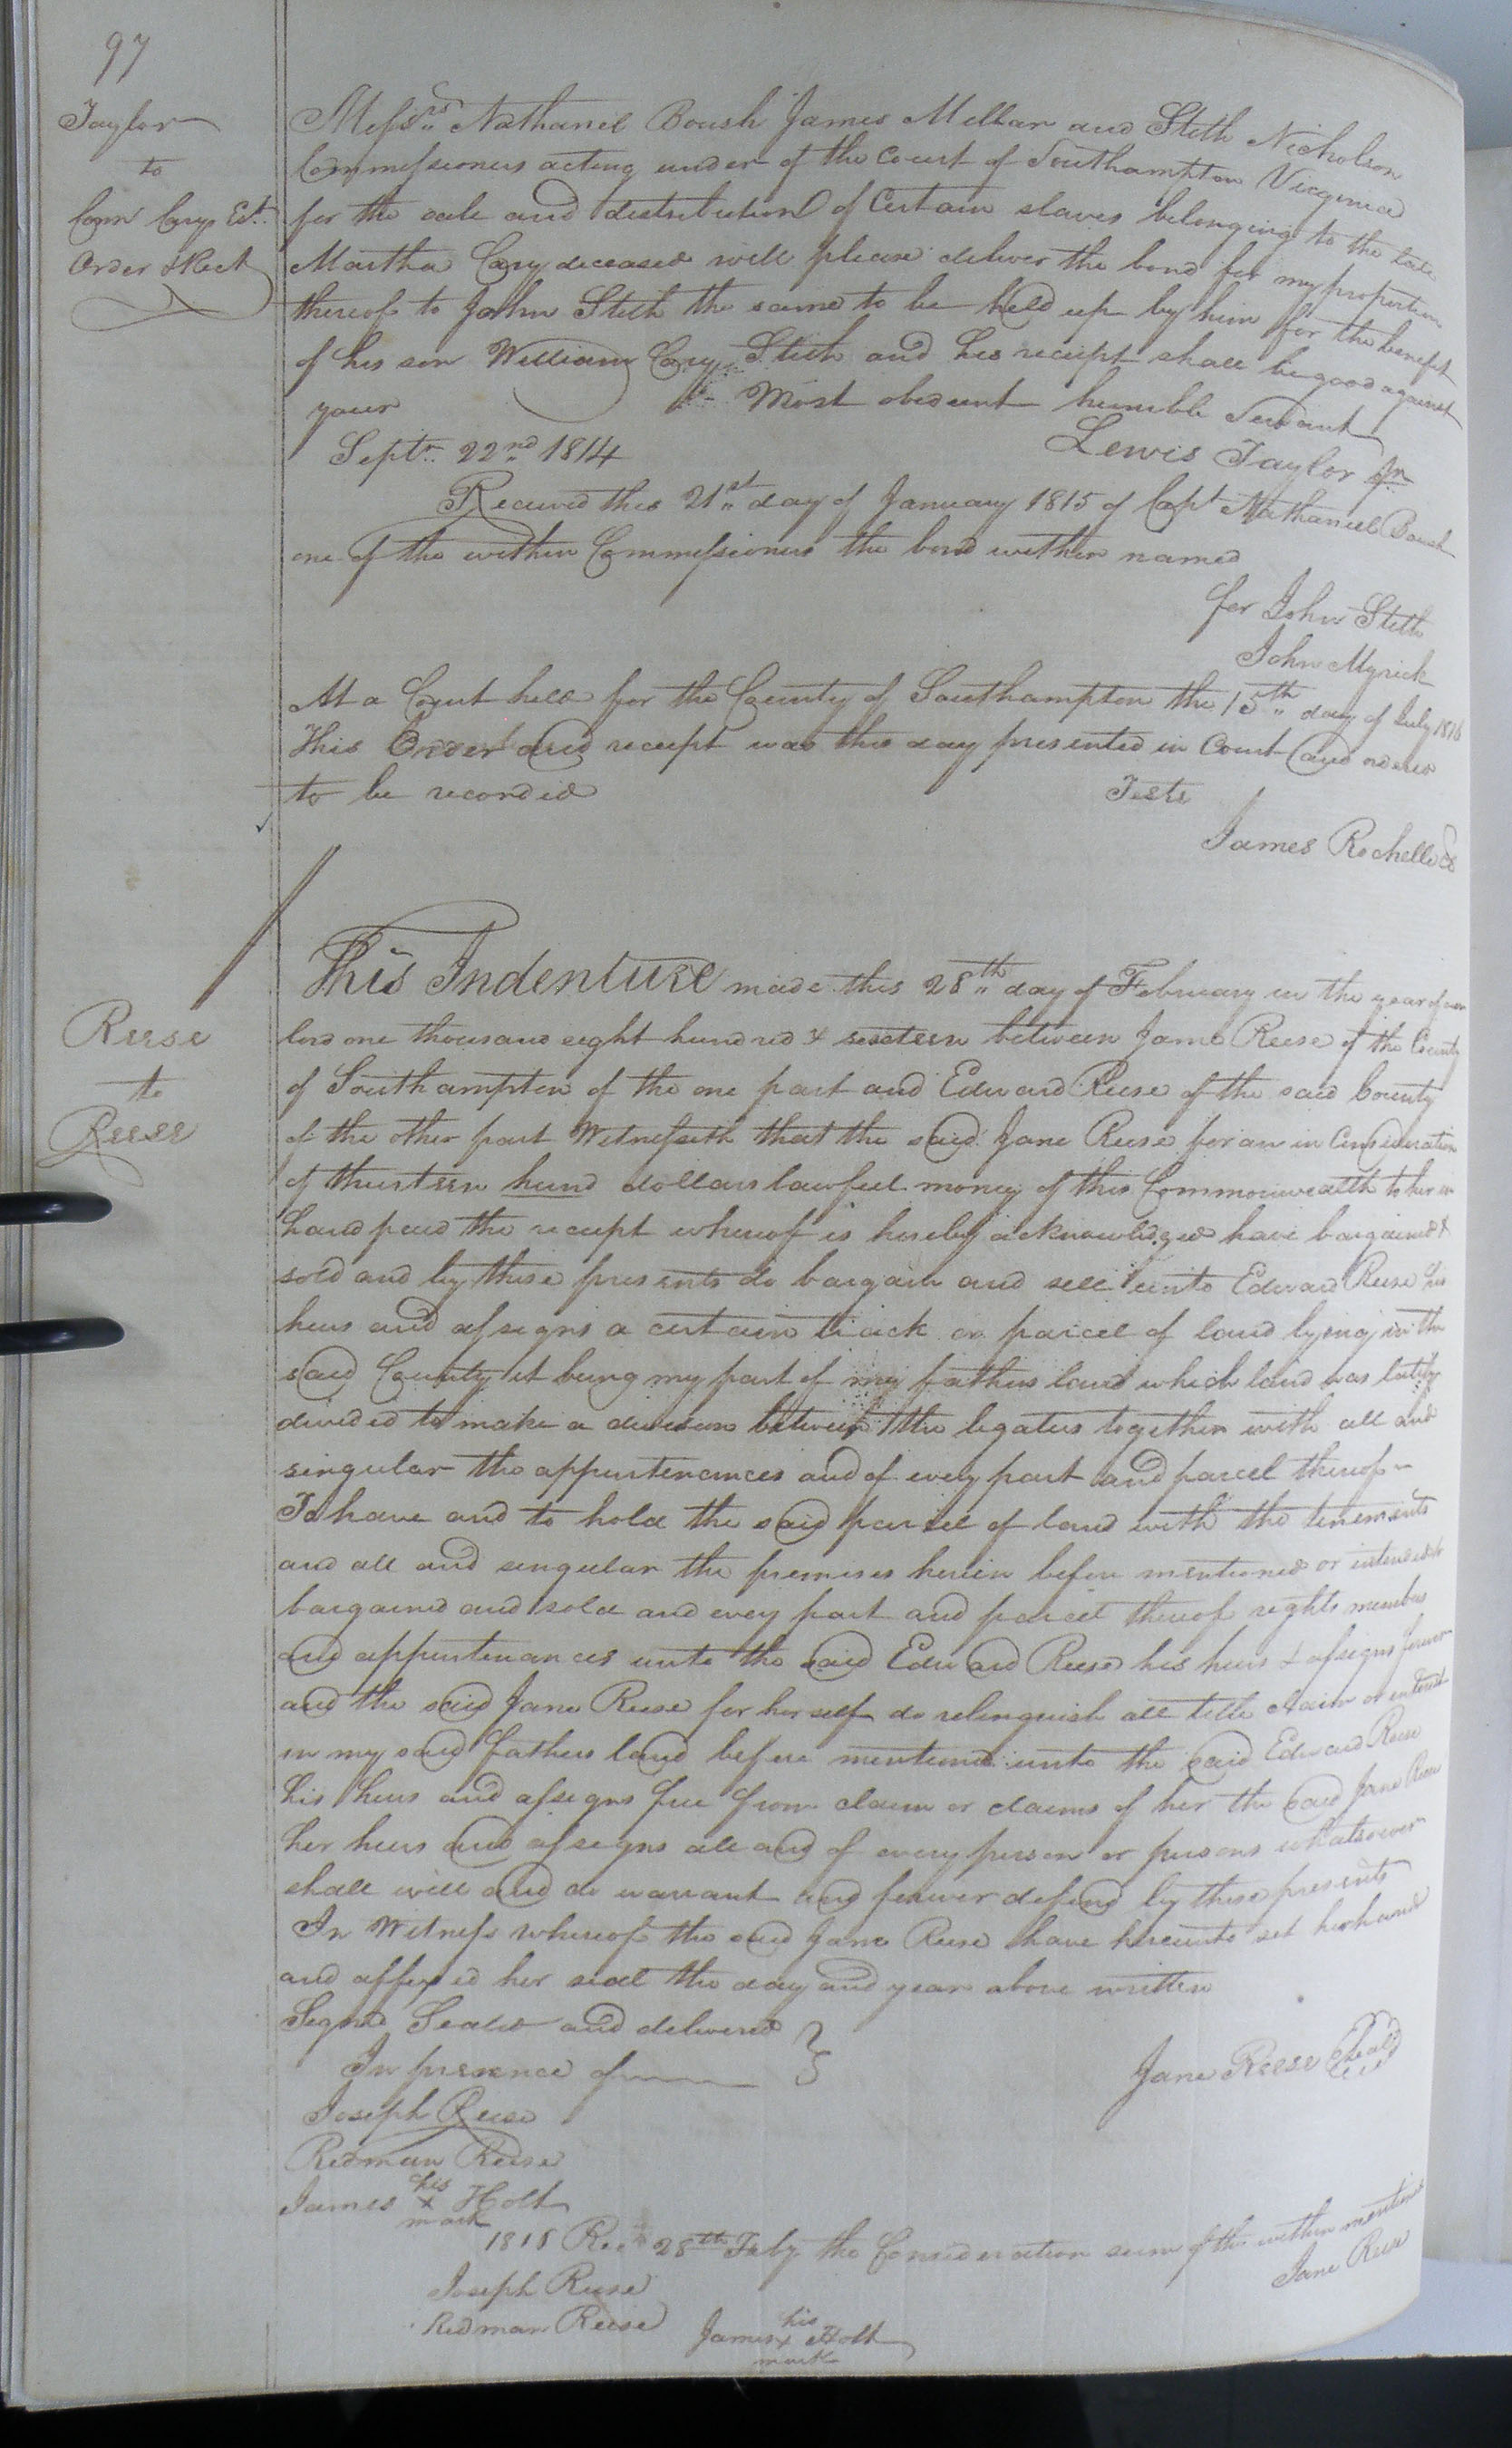 97
Taylor
to
Com Carys Est.
Order & Rect
Messrs Nathanel Boush James Mellar and Stith Nicholson
Commissioners acting under of the court of Southampton Virginia
for the sale and distribution of Certain slaves belonging to the late
Martha Cary deceased will please deliver the bond for my proportion
thereof to John Stith the same to be held up by him for the benefit
of his son William Cary Stith and his receipt shall be good against
your Most obedient humble Servant
Septr. 22nd 1814 Lewis Taylor Jr
Received this 21st day of January 1815 of Capt Nathaniel Boush
one of the within Commissioners the bond within named
for John Stith
John Myrick
At a Court held for the County of Southampton the 15th day of July 1816
This Order and receipt was this day presented in Court and ordered
to be recorded Teste
James Rochelle
Reese
to
Reese
This Indenture made this 28th day of February in the year of our
lord one thousand eight hundred & sixteen between Jane Reese of the County
of Southampton of the one part and Edward Reese of the said County
of the other part Witnesseth that the said Jane Reese for an in Consideration
of thirteen hund dollars lawful money of this Commonwealth to her in
hand paid the receipt whereof is hereby acknowledged have bargained &
sold and by these presents do bargain and sell unto Edward Reese his
heirs and assigns a certain track or parcel of land lying in the
said County it being my part of my fathers land which land was lately
divided to make a division between the legatees together with all and
singular the appurtenances and of every part and parcel thereof
To have and to hold the said parcel of land with the tenements
and all and singular the premises herein before mentioned or intended to
bargained and sold and every part and parcel thereof rights members
and appurtenances unto the said Edward Reese his heirs & assigns forever
and the said Jane Reese for herself do relinquish all title claim or interest
in my said fathers land before mentiond unto the said Edward Reese
his heirs and assigns free from claim or claims of her the said Jane Reese
her heirs and assigns all and of every person or persons whatsoever
shall will and do warrant and forever defend by these presents
In Witness whereof the said Jane Reese have hereunto set her hand
and affixed her seal the day and year above written
Signd Seald and delivered
In presence of Jane Reese Seal
Joseph Reese
Redman Reese
James his x mark Holt
1816 Rec 28th Feby the Consideration sum of the within mentiond
Joseph Reese Jane Reese
Redman Reese James his x mark Holt